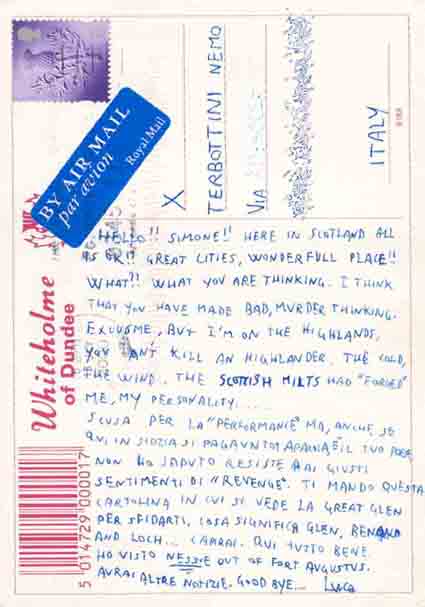 BY AIR MAIL
par avion
Royal Mail
X
TERBOTTINI NEMO
VIA
ITALY
Whiteholme
of Dundee
5 014729 000017
HELLO!! SIMONE!! HERE IN SCOTLAND ALL
IS GREAT CITIES, WONDERFULL PLACE!!
WHAT?! WHAT YOU ARE THINKING. I THINK
THAT YOU HAVE MADE BAD, MURDER THINKING.
BUT I'M ON THE HIGHLANDS,
YOU KILL AN HIGHLANDER. THE COLD,
THE WIND. THE SCOTTISH HAD "FORGED"
ME, MY PERSONALITY....
SCUSA PER LA "PERFORMANCE" MA, ANCHE SE
QUI, IN SI IL TUO
NON HO SAPUTO AI GIUSTI
SENTIMENTI DI "REVENGE". TI MANDO QUESTA
CARTOLINA IN CUI SI VEDE LA GREAT GLEN
PER SFIDARTI, COSA SIGNIFICA GLEN, BEN
AND LOCH... QUI TUTTO BENE.
HO VISTO NESSIE OUT OF FORT AUGUSTUS.
AVRAI ALTRE NOTIZIE. GOOD BYE... LUCA